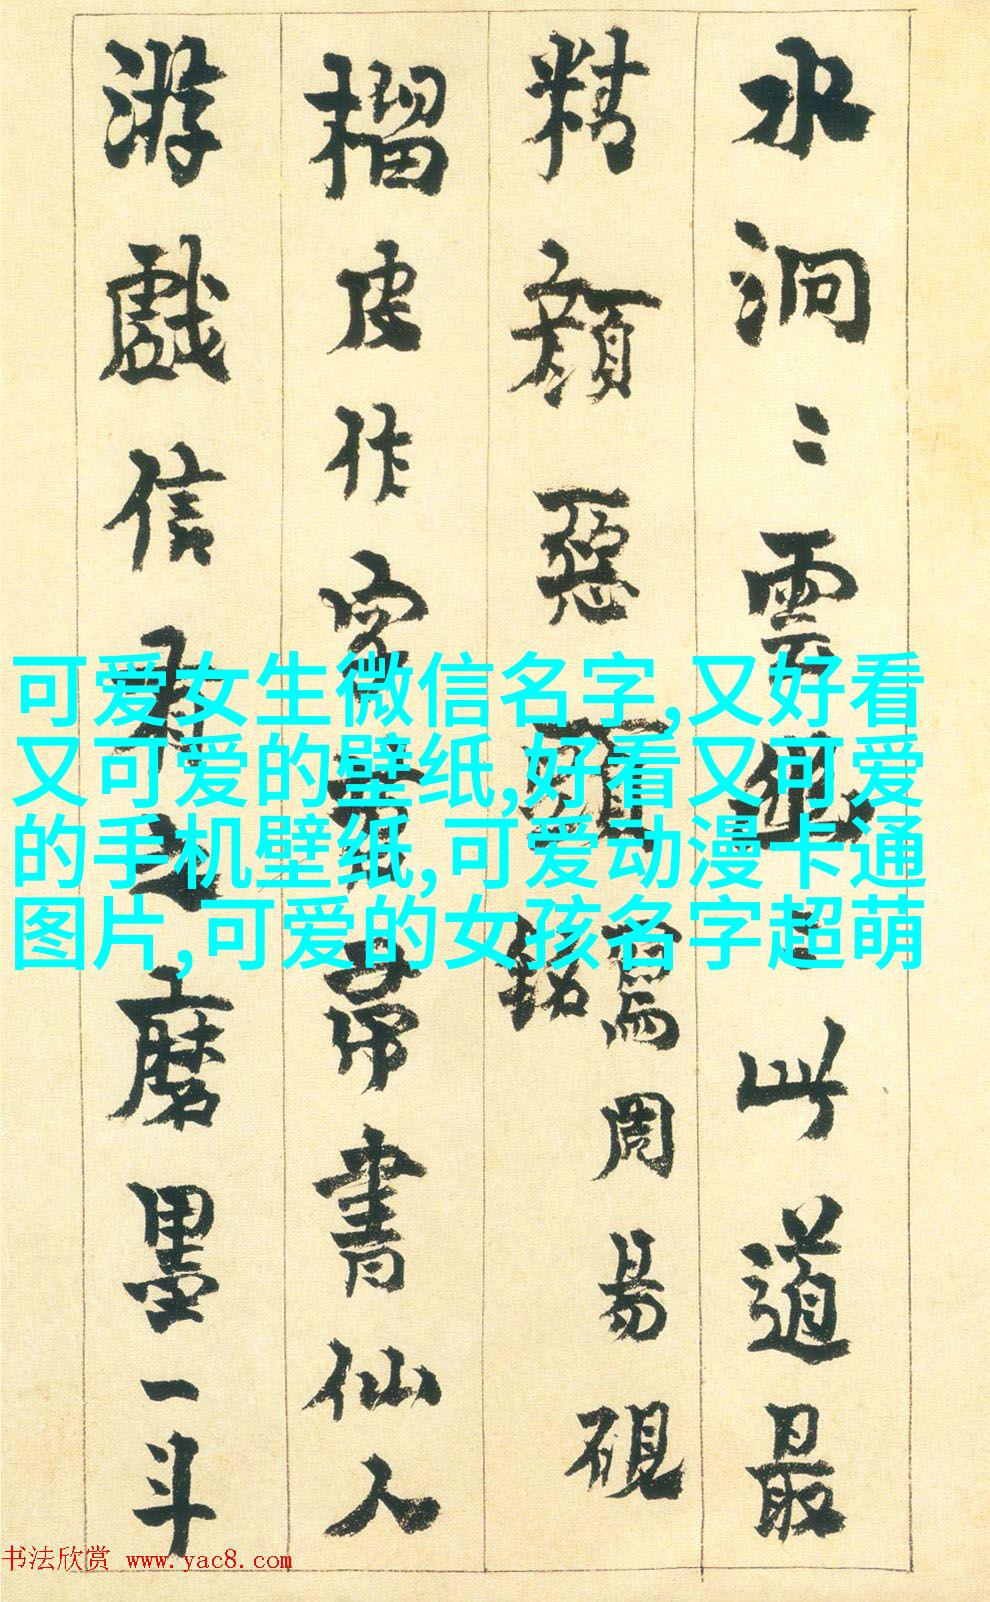 水洞〻雲〻此道最
精顏惡頭寫周易硯
銘
榴皮作字苕帚書仙人
游戲信有之磨墨一斗
可爱女生微信名字,又好看
又可爱的壁纸,好看又可爱
的手机壁纸,可爱动漫卡通
图片,可爱的女孩名字超萌
书法欣赏 www.yac8.com